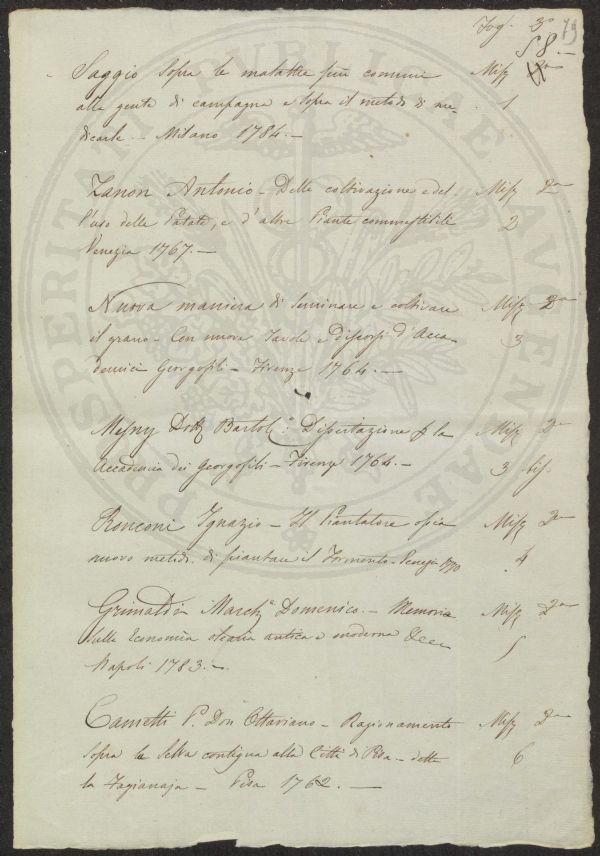 Fog. 3° 79
58. —
Saggio sopra le malattie più comuni Misz
alle gente di campagna e sopra il metodo di me- 1
dicarle — Milano 1784. —
Zanon Antonio — Della coltivazione e del Misz 2a
l'uso delle Patate, e d'altre Piante commestibili 2
Venezia 1767. —
Nuova maniera di seminare e coltivare Misz 2a
il grano — Con nuove Tavole e discorsi d'Acca- 3
demici Georgofili — Firenze 1764. —
Mesny Dott Bartolo: Dissertazione p la Misz 2a
Accademia dei Georgofili — Firenze 1764. — 3 bis.
Ronconi Ignazio — Il Piantatore ossia Misz 2a
nuovo metodo di piantare il Formento — Venezia 1770 4
Grimaldi March.e Domenico. — Memoria Misz 2a
sulla Economia olearia antica e moderna &cc. 5
Napoli 1783. —
Cametti P. Don Ottaviano — Ragionamento Misz 2a
sopra la Selva contigua alla Città di Pisa. — detta 6
la Fagianaja — Pisa 1762. —
PROSPERITATI PUBLICAE AUGENDAE